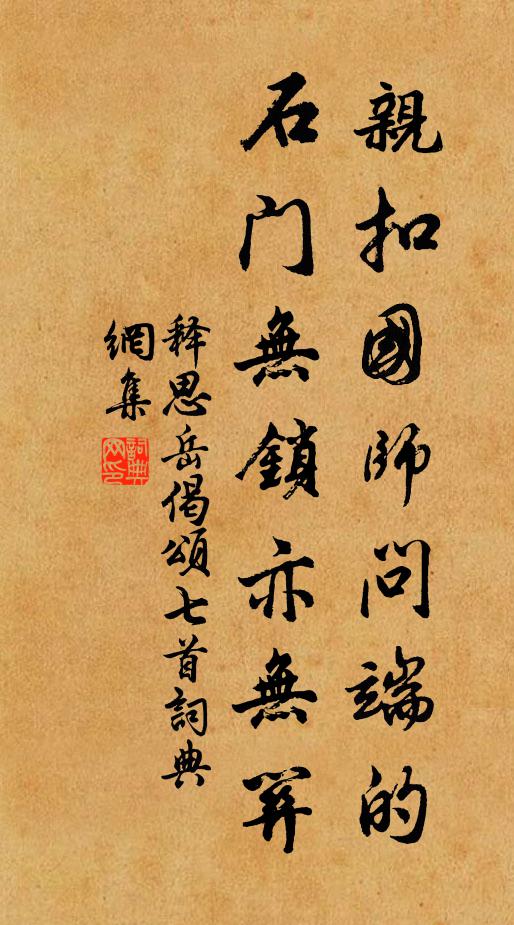 親扣國師問端的
石门無鎖亦無関
释思岳偈頌七首詞典
網集
詞典网印